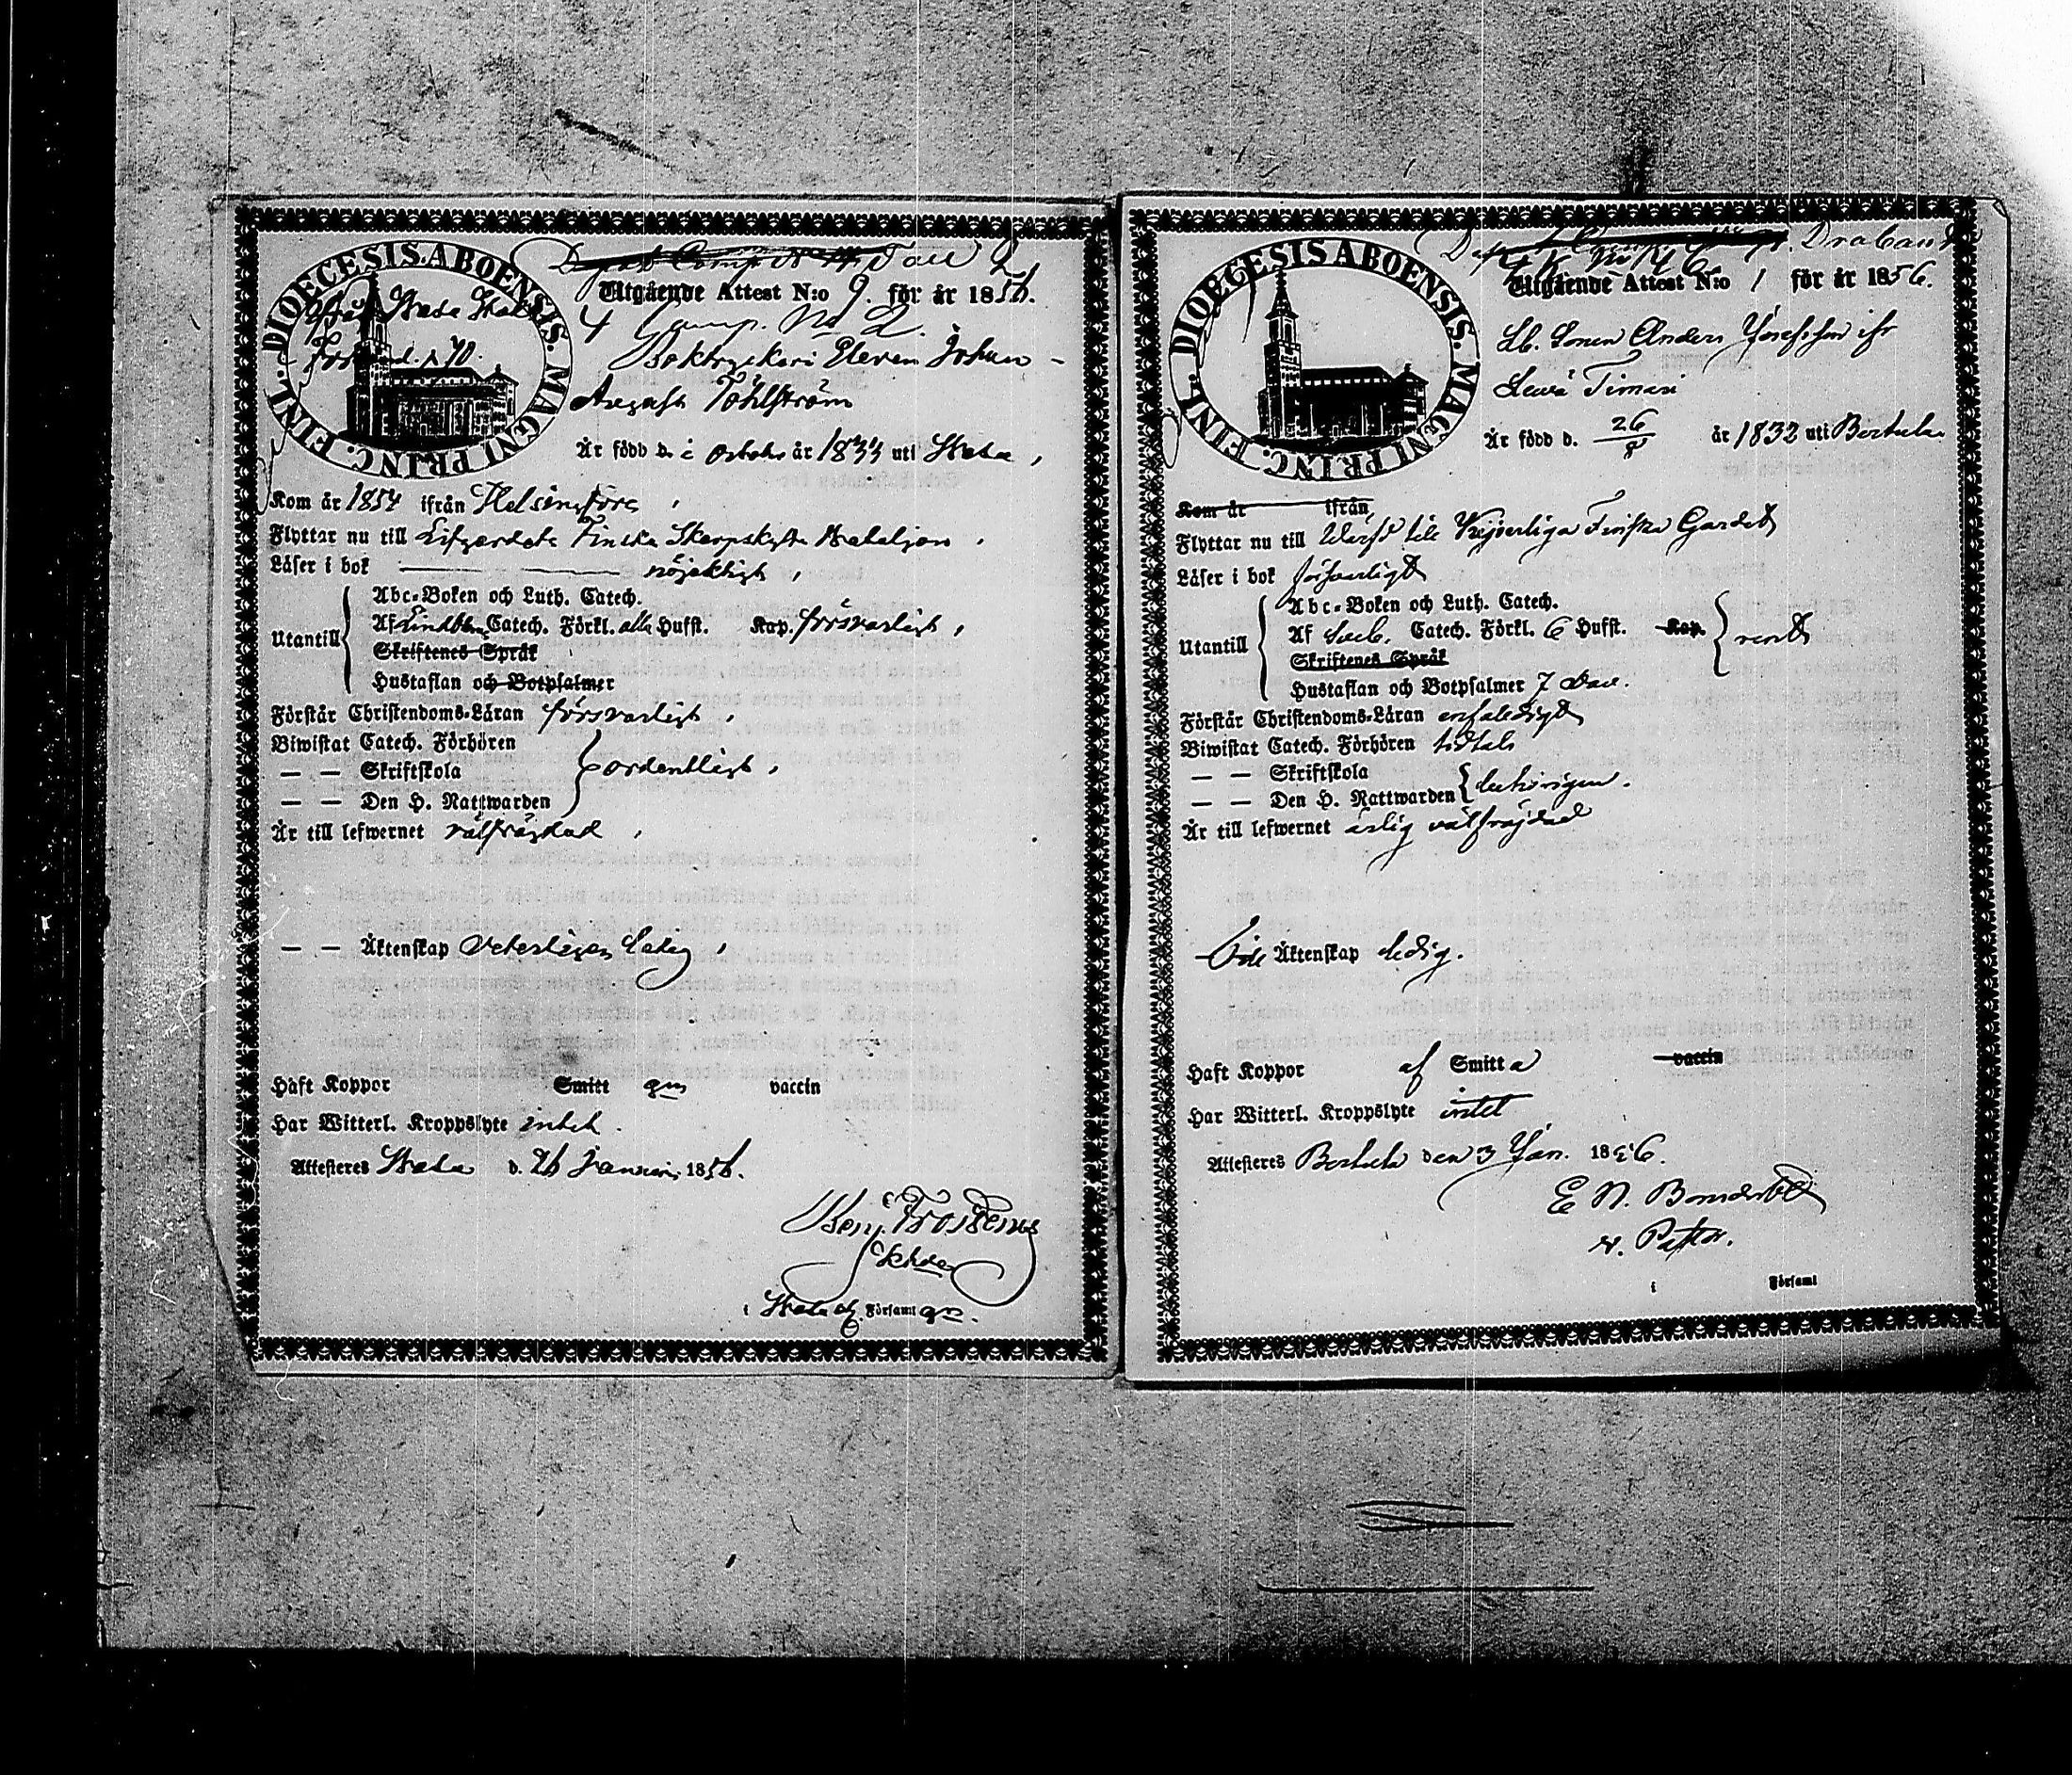 DIOECESIS ABOENSIS. MAGNI PRINC. FINL.
Utgående Attest N:o 9. för år 1856.
4 Comp. No 2.
Boktryckeri Eleven Johan
August Töhlström
Är född d. i October år 1833 uti
Kom år 1854 ifrån Helsingfors,
Flyttar nu till Lifgardets Finska Skarpskytte Bataljon.
Läser i bok nöjaktigt,
Utantill
Abc-Boken och Luth. Catech.
Af Lindbloms Catech. Förkl. alla Hufst. Kap. försvarligt,
Skriftenes Språk
Hustaflan och Botpsalmer
Förstår Christendoms-Läran försvarligt,
Biwistat Catech. Förhören
— — Skriftskola
ordentligt,
— — Den H. Nattwarden
Är till lefwernet välfräjdad,
— — Äktenskap veterligen ledig,
Haft Koppor Smitt gm vaccin
Har Witterl. Kroppslyte intet.
Attesteres d. 26 Januari 1856.
Benj. Frosterus
i Församl
DIOECESIS ABOENSIS. MAGNI PRINC. FINL.
Utgående Attest N:o 1 för år 1856.
Sonen Anders Josefsson ifr
Timari
Är född d. 26/8 år 1832 uti
Kom år ifrån
Flyttar nu till Kejserliga Finska Gardet
Läser i bok försvarligt
Utantill
Abc-Boken och Luth. Catech.
Af Catech. Förkl. 6 Hufst. Kap.
Skriftenes Språk
Hustaflan och Botpsalmer 7 Dav.
Förstår Christendoms-Läran enfaldigt
Biwistat Catech. Förhören
— — Skriftskola
behörigen.
— — Den H. Nattwarden
Är till lefwernet ärlig välfräjdad
Till Äktenskap ledig.
Haft Koppor af Smitta vaccin
Har Witterl. Kroppslyte intet
Attesteres den 3 Jan. 1856.
v. Pastor.
i Församl